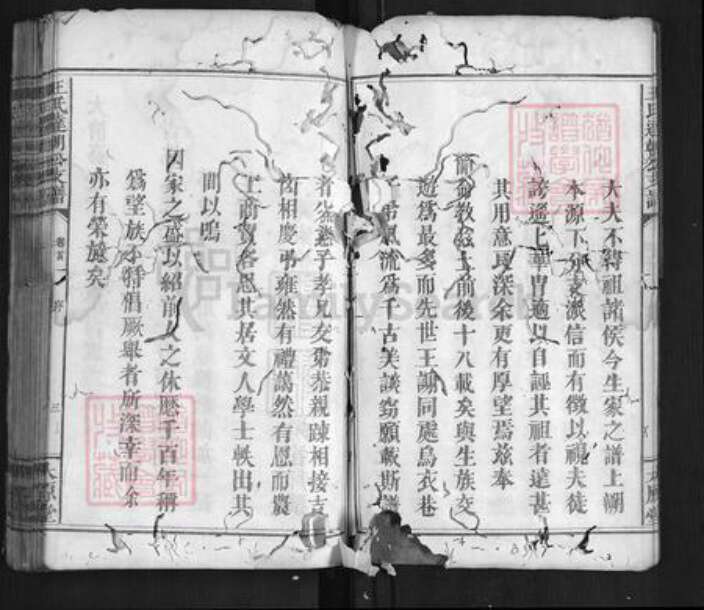 大夫不得祖諸侯今生家之譜上溯
本源下分支派信而有徵以視夫徒
誇遙遙華胄適以自誣其祖者達甚
其用意良深余更有厚望焉茲奉
命教諭 前後十八載矣與生族交
遊為最多而先世王謝同處烏衣巷
風流為千古美談竊願載斯譜
者父慈子孝兄友弟恭親踈相接吉
凶相慶弔雍然有禮藹然有恩而農
工商賈各思其居文人學士軼出其
間以鳴
國家之盛以紹前人之休歷千百年稱
為望族不特倡厥舉者所深幸而余
亦有榮施矣
卷首
序
三
太原堂
FamilySearch